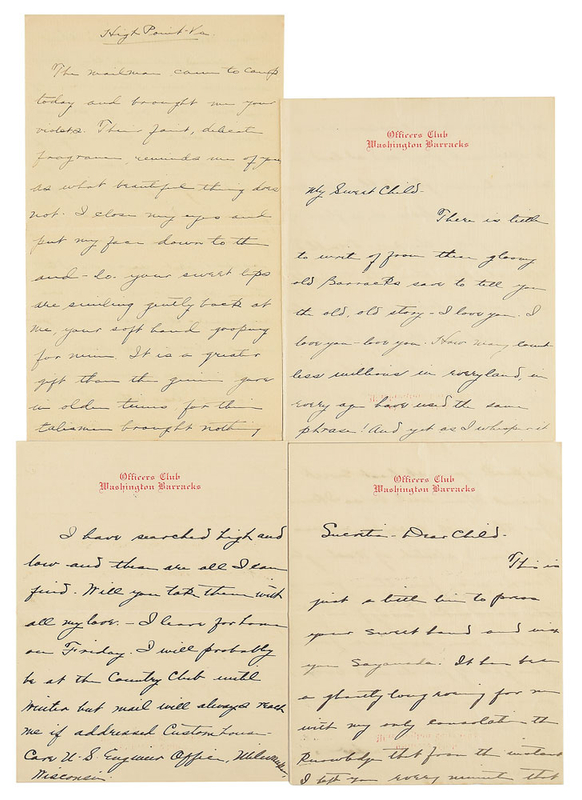 High Point - Va.
The mailman came to camp
today and brought me your
violets. Their faint, delicate
reminds me of you
as what beautiful thing does
not. I close my eyes and
put my face down to them
and - lo. your sweet lips
are smiling gently back at
me, your soft hand groping
for mine. It is a greater
gift than the genii gave
in olden times for their
talisman brought nothing
Officers Club
Washington Barracks
My Sweet Child -
There is little
to write of from these gloomy
old Barracks save to tell you
the old, old story - I love you. I
love you - love you. How many count-
less millions in every land, in
every age have used the same
phrase! And yet as I whisper it
Officers Club
Washington Barracks
I have searched high and
low and these are all I can
find. Will you take them with
all my love. - I leave for home
on Friday. I will probably
be at the Country Club until
Winter but mail will always reach
me if addressed Custom House -
Care U. S. Engineer Office, Milwaukee,
Wisconsin.
Officers Club
Washington Barracks
Dear Child -
This is
just a little line to press
your sweet hand and wish
you Sayonada. It has been
a ghastly long for me
with my only consolation the
Knowledge that from the instant
I left you every minute that